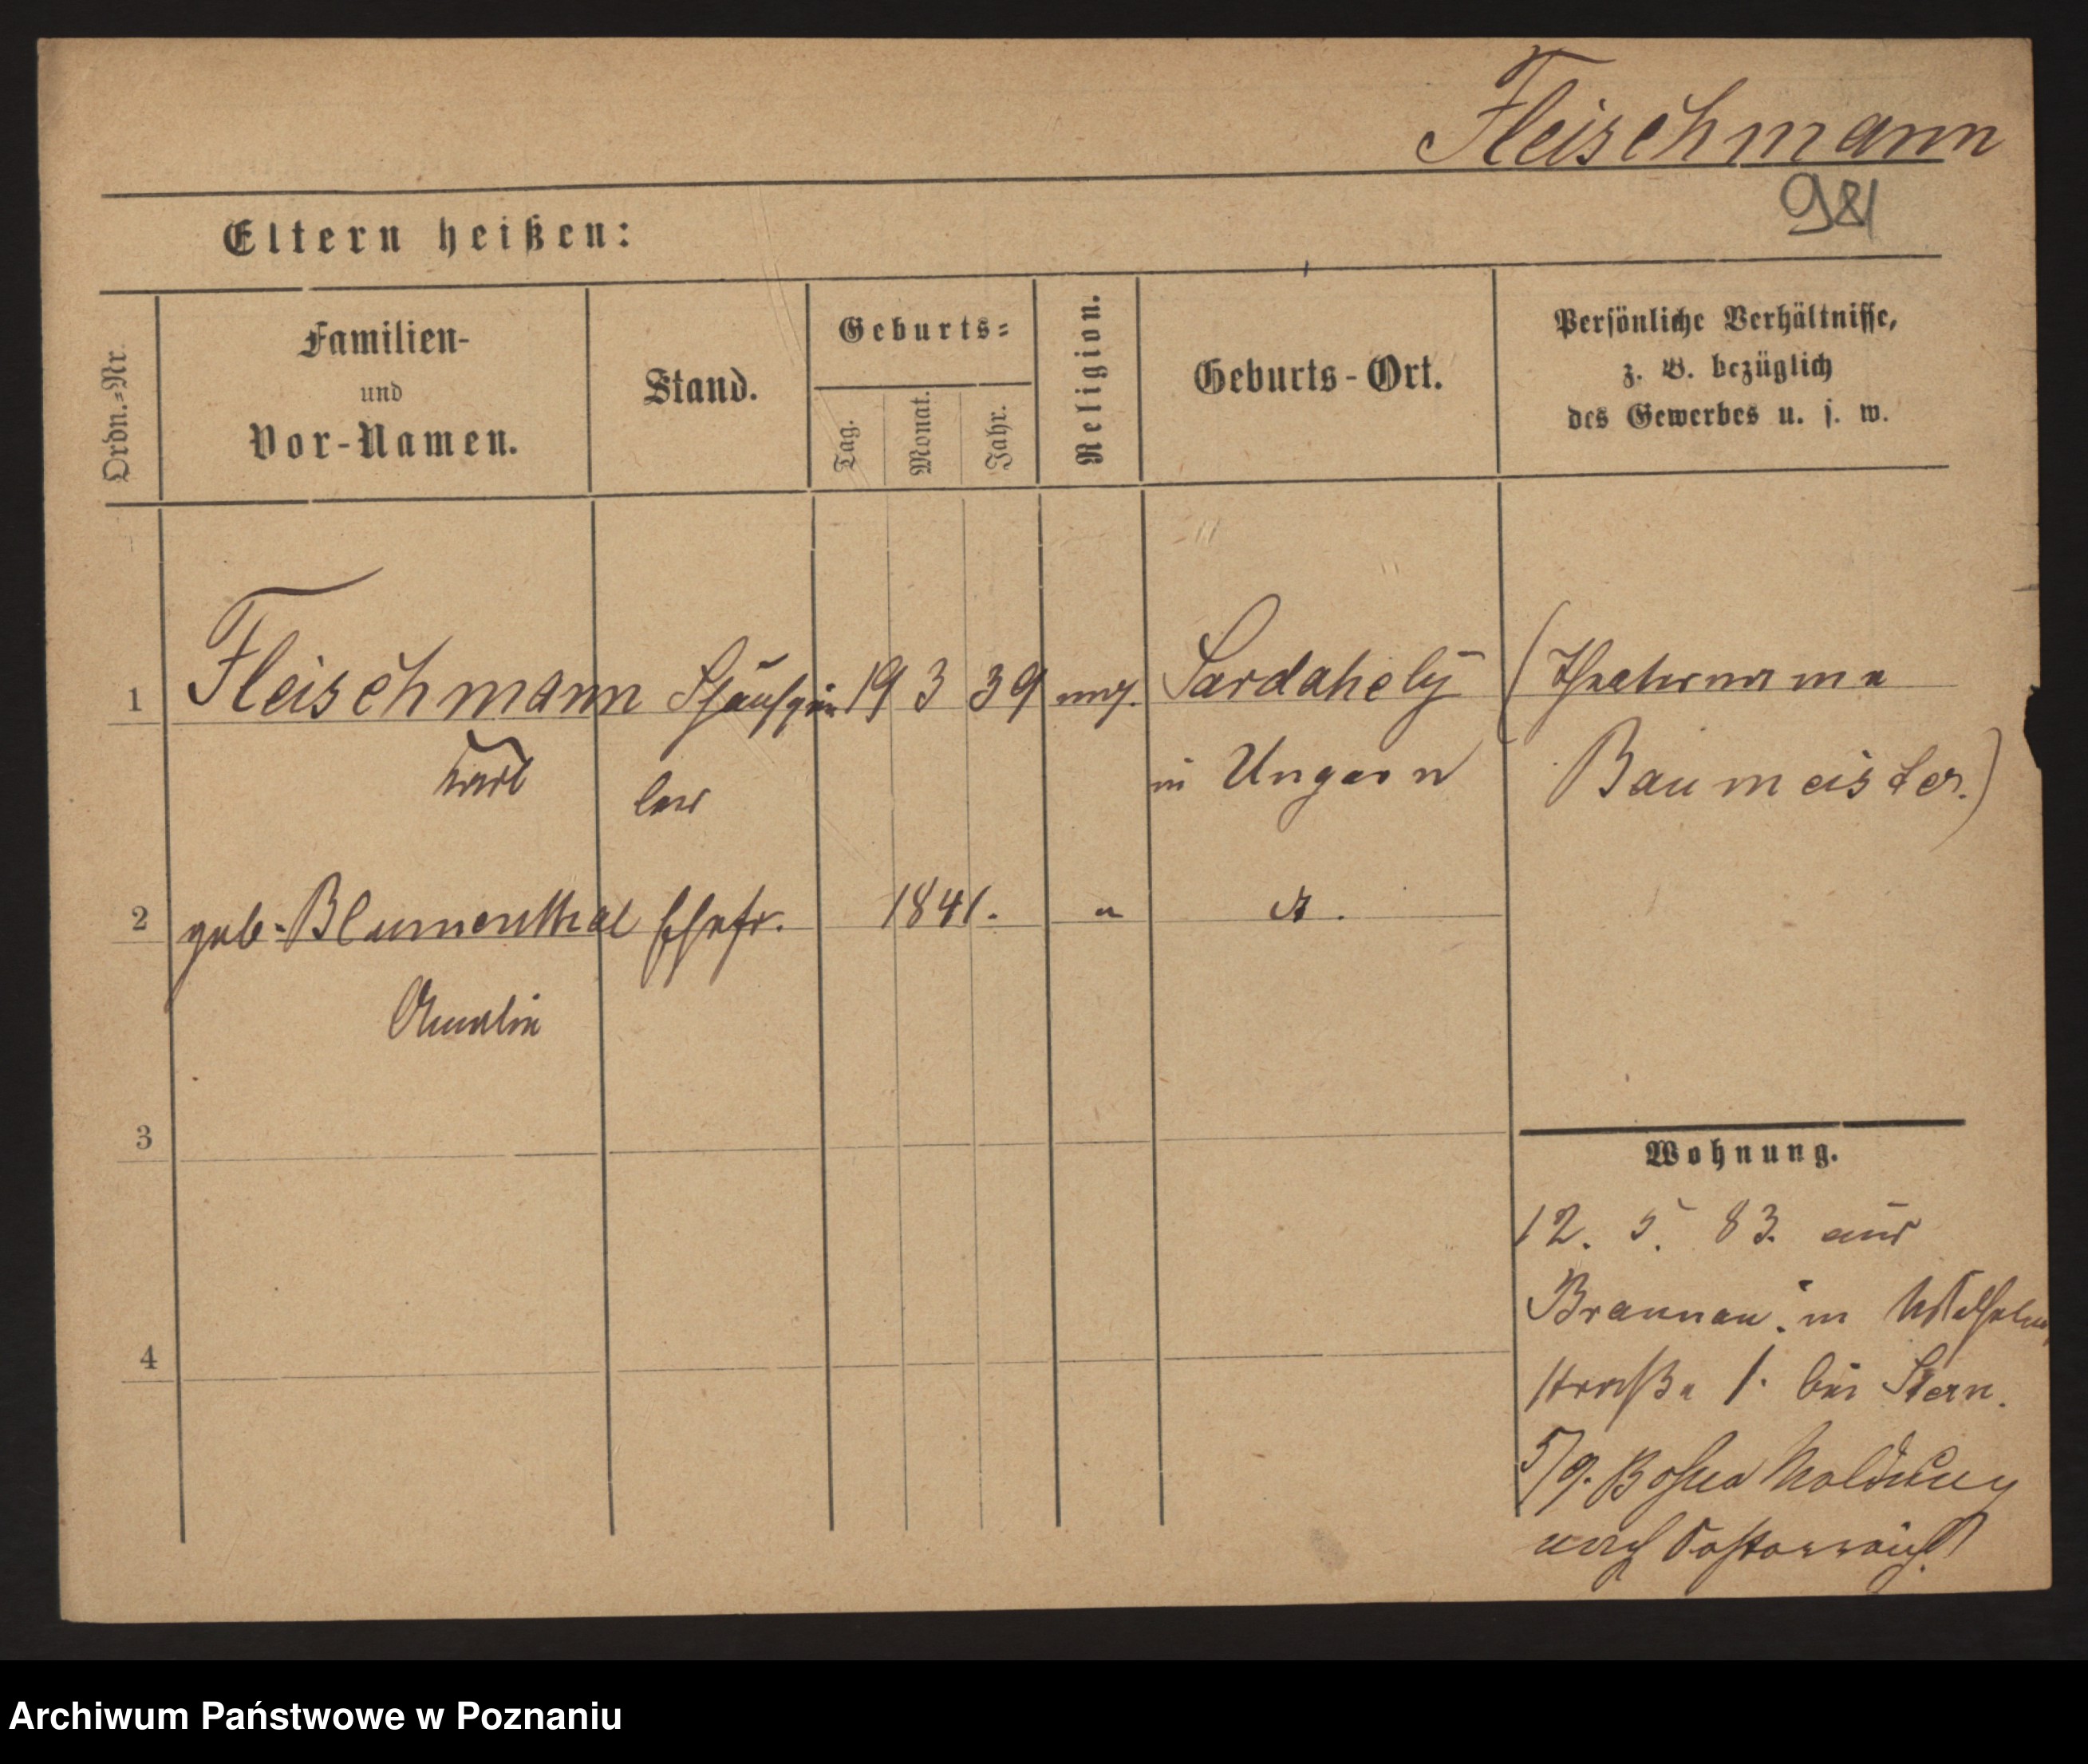 Fleischmann
981
Eltern heißen:
Ordn.=Nr.
Familien-
und
Vor-Namen.
Stand.
Geburts=
Tag.
Monat.
Jahr.
Religion.
Geburts-Ort.
Persönliche Verhältnisse,
z. B. bezüglich
des Gewerbes u. s. w.
1 Fleischmann Schauspie 19 3 39 Sardahely (Theatername
Karl ler in Ungarn Baumeister.)
2 geb. Blumenthal Ehefr. 1841. " .
Amalie
3
Wohnung.
12. 5. 83. aus
Braunau in Wilhelm
4
straße 1. bei Stern.
5/9. Meldung
nach Oesterreich
Archiwum Państwowe w Poznaniu